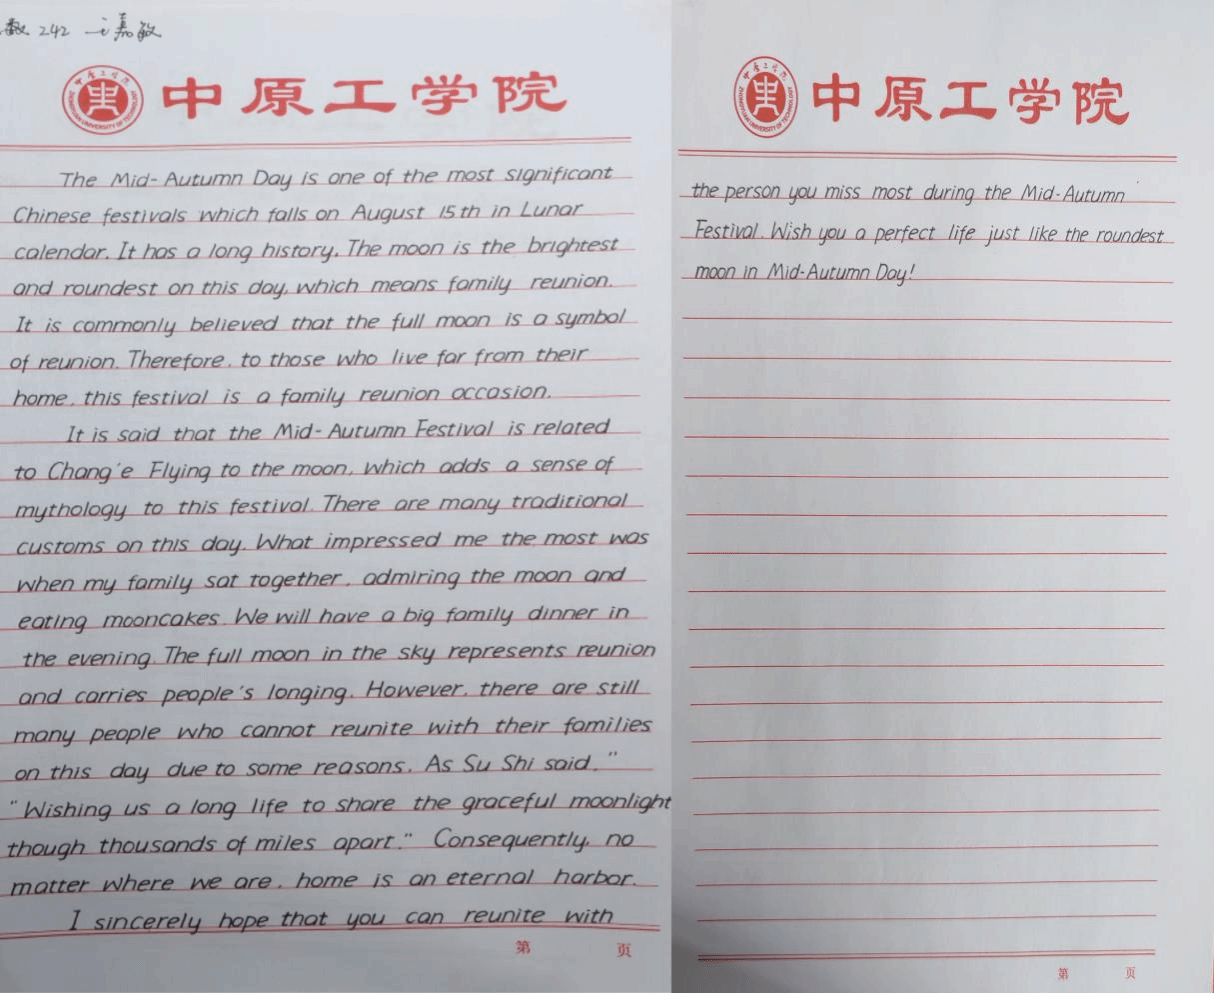 数 242 王嘉敏
中原工学院
The Mid-Autumn Day is one of the most significant
Chinese festivals which falls on August 15th in Lunar
calendar. It has a long history. The moon is the brightest
and roundest on this day, which means family reunion.
It is commonly believed that the full moon is a symbol
of reunion. Therefore, to those who live far from their
home, this festival is a family reunion occasion.
It is said that the Mid-Autumn Festival is related
to Chang'e Flying to the moon, which adds a sense of
mythology to this festival. There are many traditional
customs on this day. What impressed me the most was
when my family sat together, admiring the moon and
eating mooncakes. We will have a big family dinner in
the evening. The full moon in the sky represents reunion
and carries people's longing. However, there are still
many people who cannot reunite with their families
on this day due to some reasons. As Su Shi said, "
"Wishing us a long life to share the graceful moonlight
though thousands of miles apart." Consequently, no
matter where we are, home is an eternal harbor.
I sincerely hope that you can reunite with
第 页
中原工学院
ZHONGYUAN UNIVERSITY OF TECHNOLOGY
the person you miss most during the Mid-Autumn
Festival. Wish you a perfect life just like the roundest
moon in Mid-Autumn Day!
第 页